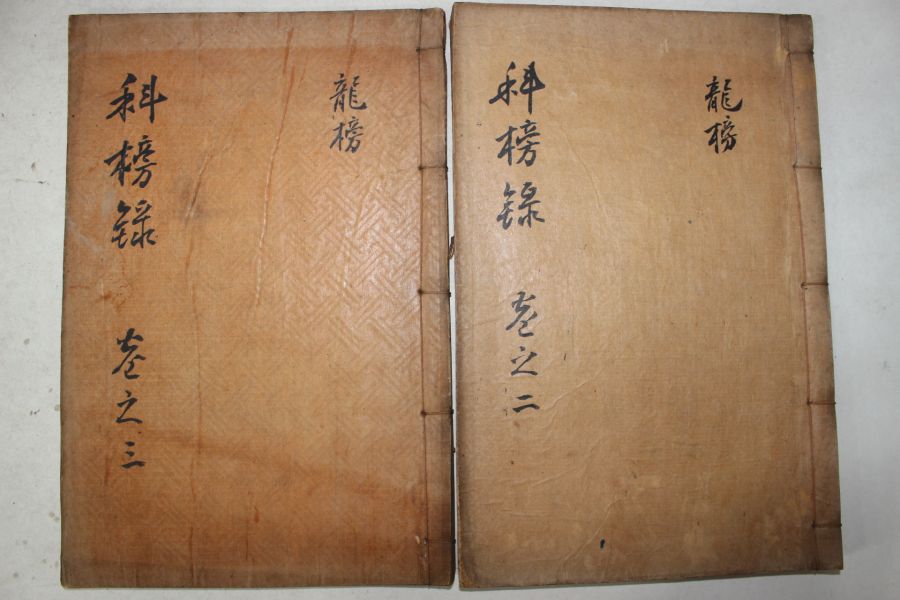 龍榜
科榜錄 卷之二
龍榜
科榜錄 卷之三